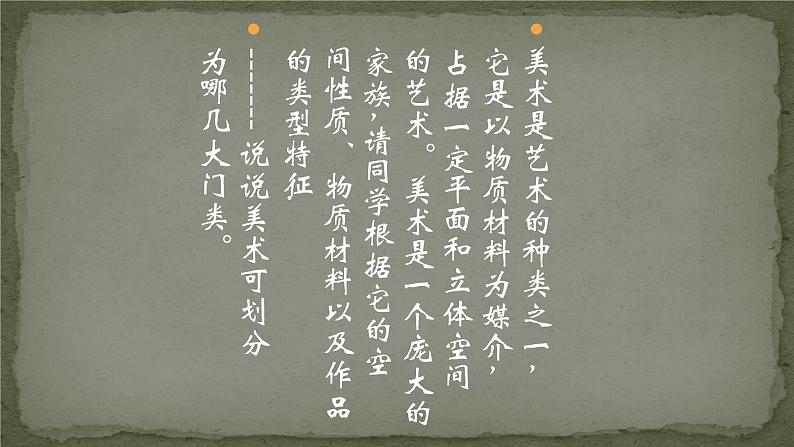 美术是艺术的种类之一，
它是以物质材料为媒介，
占据一定平面和立体空间
的艺术。美术是一个庞大的
家族，请同学根据它的空
间性质、物质材料以及作品
的类型特征
--------说说美术可划分
为哪几大门类。